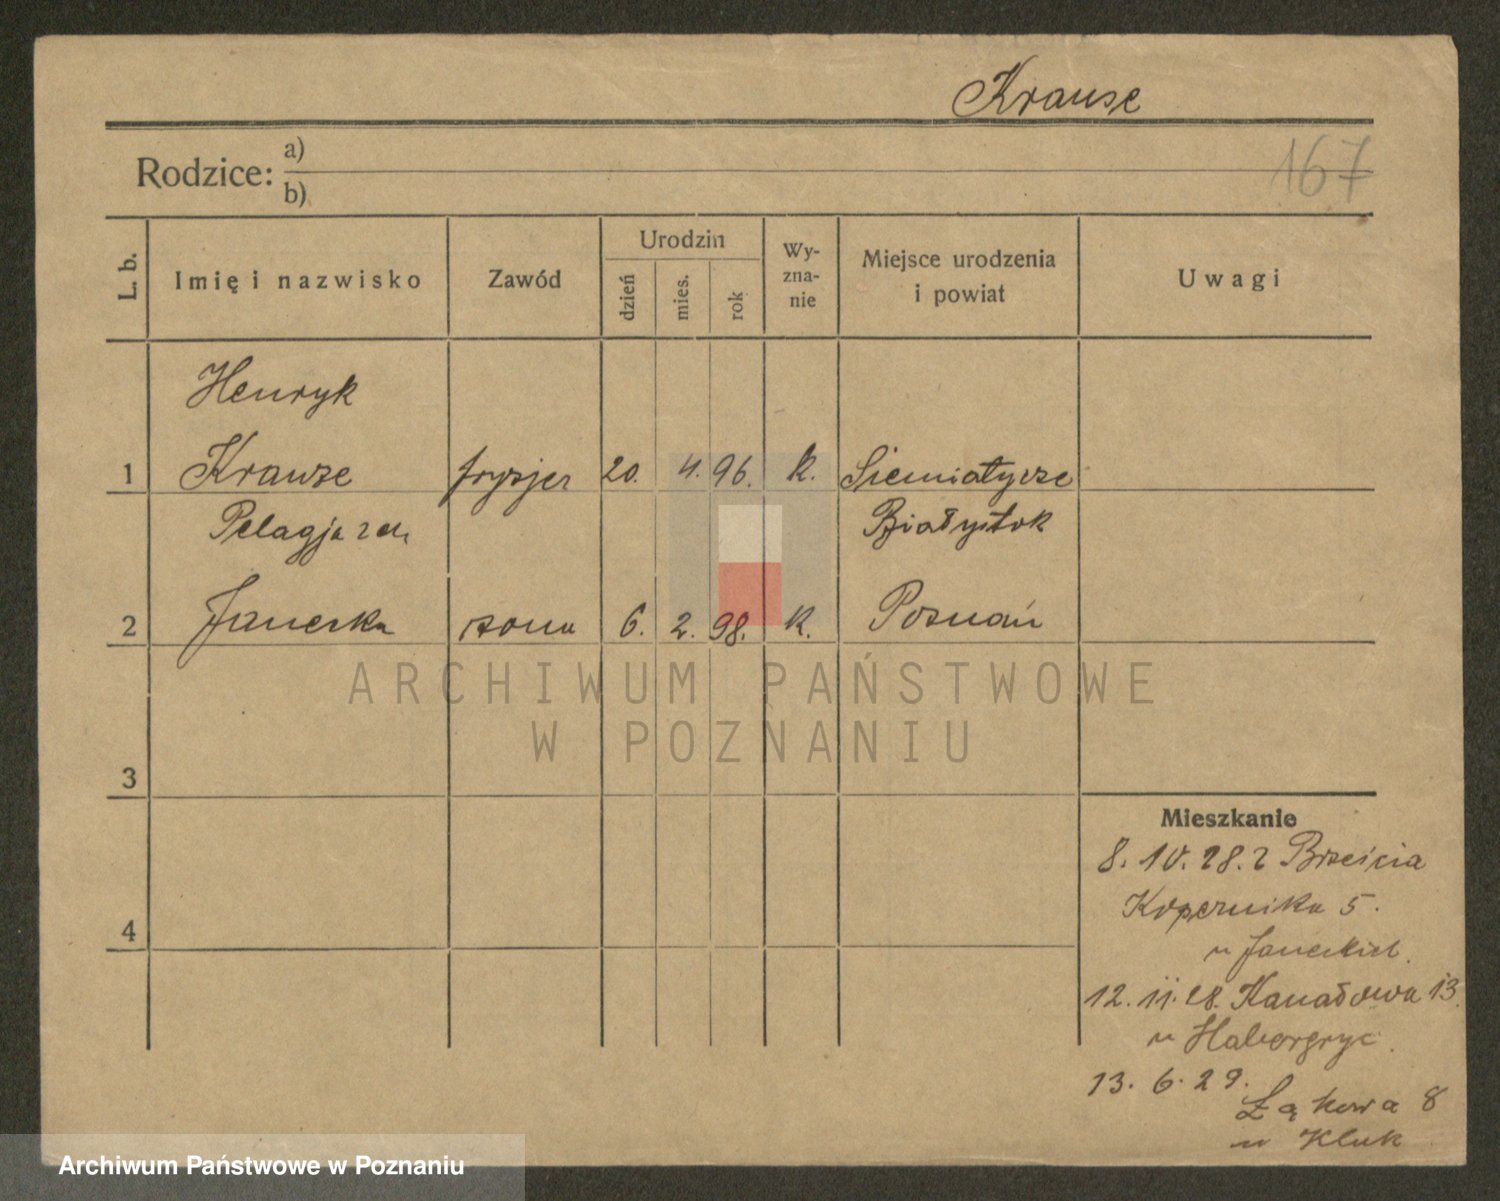 Krause
Rodzice: a)
b)
167
L. b.
Imię i nazwisko
Zawód
Urodzin
dzień
mies.
rok
Wy-
zna-
nie
Miejsce urodzenia
i powiat
Uwagi
Henryk
1 Krause fryzjer 20. 4. 96. k. Siemiatycze
Pelagja z d. Białystok
2 Janecka żona 6. 2. 98. k. Poznań
3
4
Mieszkanie
8. 10. 28. z Brześcia
Kopernika 5.
u Janeckich.
12. 11. 28. Kanałowa 13.
u
13. 6. 29.
Łąkowa 8
u Kluk
ARCHIWUM PAŃSTWOWE
W POZNANIU
Archiwum Państwowe w Poznaniu